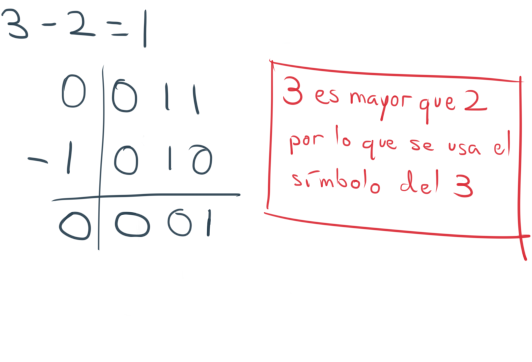 3 - 2 = 1
0 0 1 1
- 1 0 1 0
0 0 0 1
3 es mayor que 2
por lo que se usa el
símbolo del 3